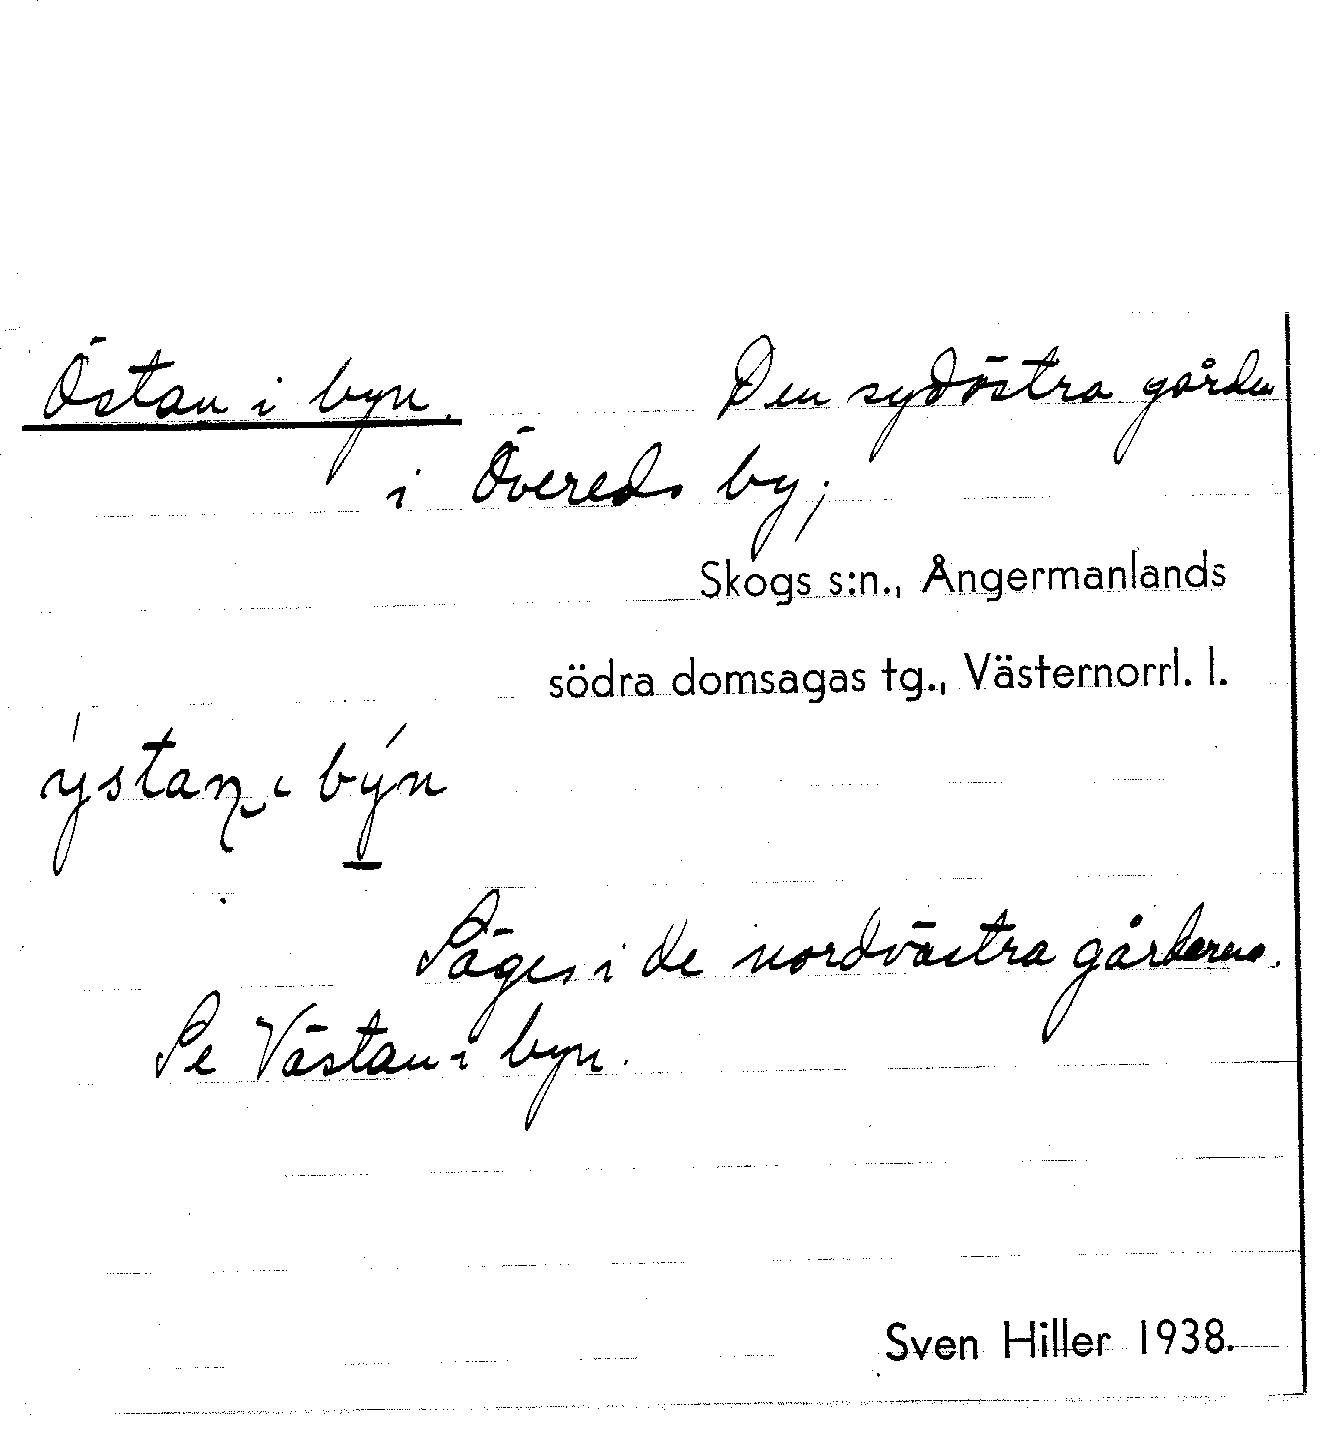 Östan i byn. Den sydöstra gården
i Övereds by;
Skogs s:n., Ångermanlands
södra domsagas tg., Västernorrl. l.
ýstan ι býn
Säges i de nordvästra gårdarna.
Se Västan i byn.
Sven Hiller 1938.